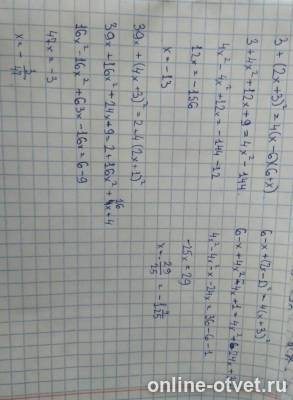 3+(2x+3)²=4(x-6)(6+x)
3+4x²+12x+9=4x²-144
4x²-4x²+12x=-144-12
12x=-156
x=-13
39x+(4x+3)²=2-4(2x+1)²
39x+16x²+24x+9=2+16x²+16x+4
16x²-16x²+63x-16x=6-9
47x=-3
x=-3/47
6-x+(2x-1)²=4(x+3)²
6-x+4x²-4x+1=4x²+24x+
4x²-4x²-x-24x=36-6-1
-25x=29
x=-29/25=-1
online-otvet.ru